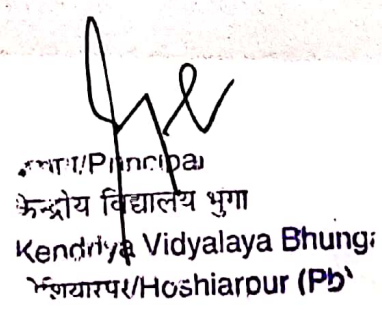 प्राचार्य/Principal
केन्द्रीय विद्यालय भुंगा
Kendriya Vidyalaya Bhunga
होशियारपुर/Hoshiarpur (Pb)